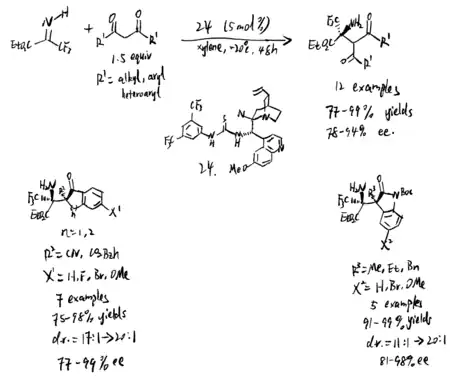 NH
EtO₂C
CF₃
+
O O
R¹ R¹
1.5 equiv
R¹ = alkyl, aryl
heteroaryl
24 (5 mol%)
xylene, -20°C, 48h
F₃C NH₂
EtO₂C
R¹
O
O
R¹
12 examples
77-99% yields
78-94% ee.
CF₃
F₃C
S
N
H
N
H
N
N
MeO
24.
H₂N
F₃C
EtO₂C
R²
O
n
X¹
n=1,2
R²= CN, CO₂Bzh
X¹= H, F, Br, OMe
7 examples
75-98% yields
d.r. = 17:1 → 20:1
77-99% ee
H₂N
F₃C
EtO₂C
R³
O
N Boc
X²
R³= Me, Et, Bn
X²= H, Br, OMe
5 examples
91-99% yields
d.r. = 11:1 → 20:1
81-98% ee